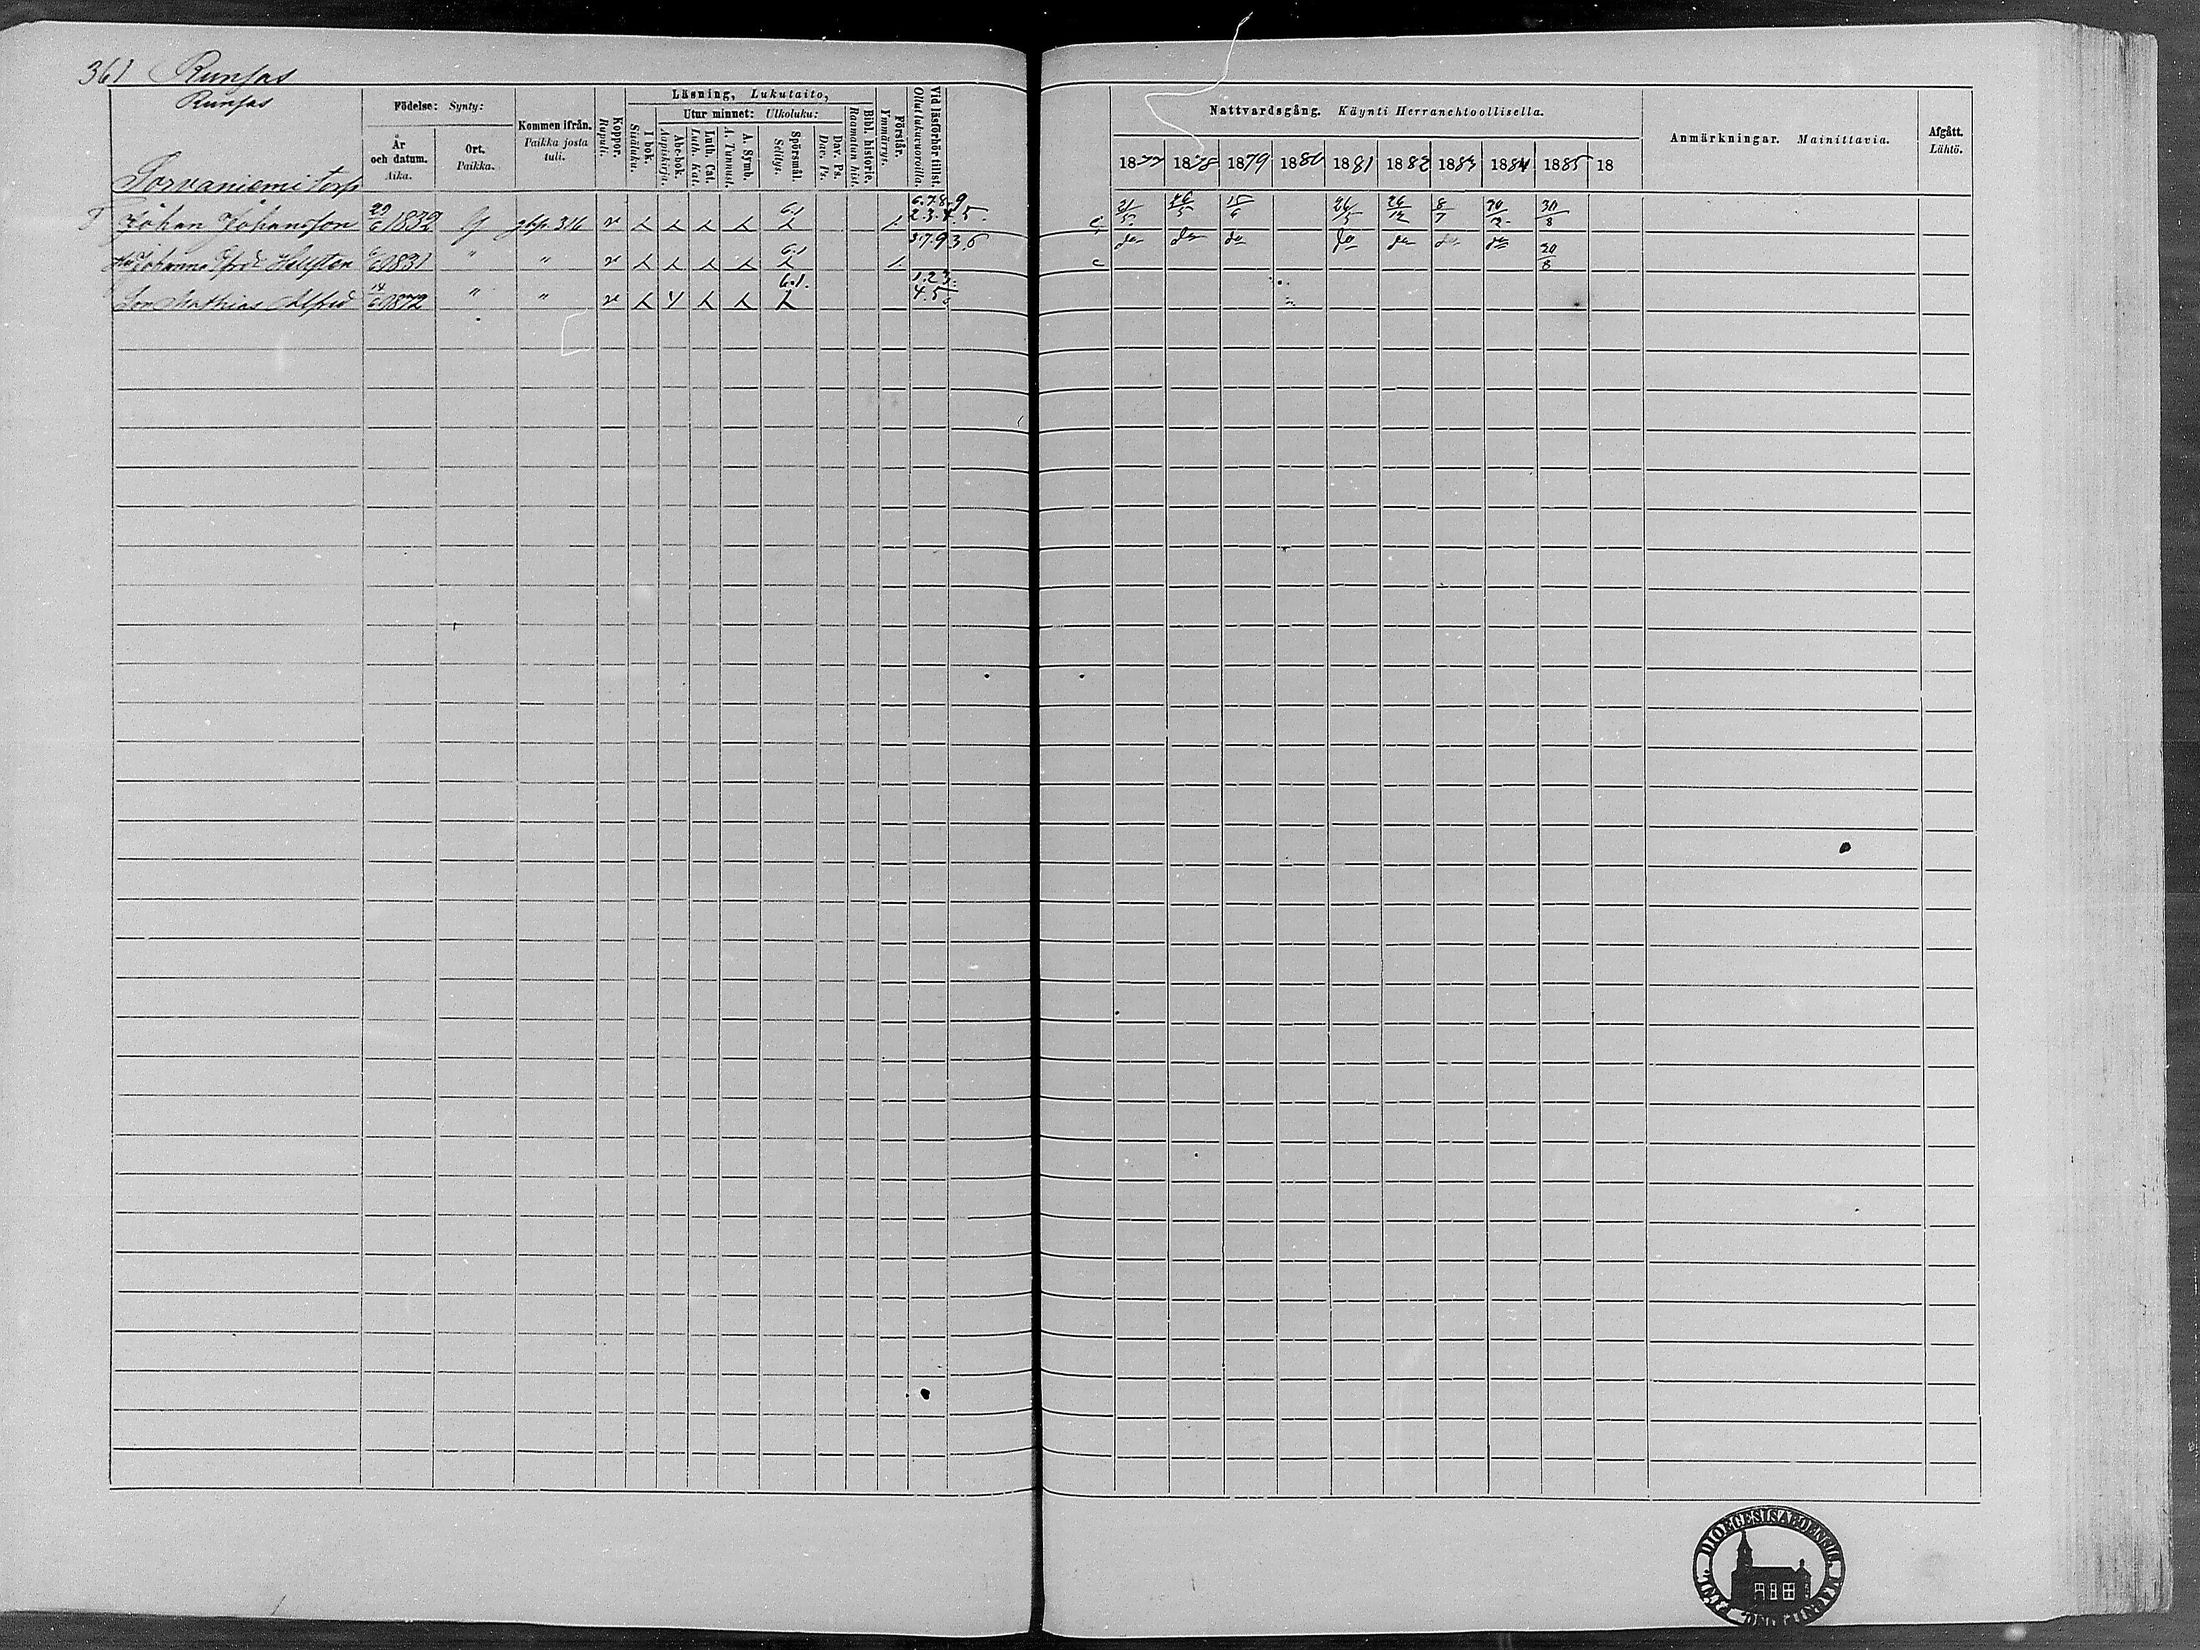 361 Runsas
Runsas
Sorvaniemi torp
Födelse: Synty:
År och datum. Aika.
Ort. Paikka.
Kommen ifrån. Paikka josta tuli.
Koppor. Rupuli.
Läsning, Lukutaito,
I bok. Sisäluku.
Utur minnet: Ulkoluku:
Abc-bok. Aapiskirja.
Luth. Cat. Luth. Kat.
A. Symb. A. Tunnust.
Spörsmål. Selitys.
Dav. Ps. Dav. Ps.
Bibl. historie. Raamatun hist.
Förstår. Ymmärrys.
Vid läsförhör tillst. Ollut lukuvuoroilla.
Nattvardsgång. Käynti Herranehtoollisella.
1877 1878 1879 1880 1881 1882 1883 1884 1885 18
Anmärkningar. Mainittavia.
Afgått. Lähtö.
T Johan Johansson 29/6 1832 gbp. 316 6.7.8.9 2.3.4.5. 21/5 26/5 15/6 26/5 26/12 8/7 30/8
Johanna 1831 " " 6.1 3.7.9.3.5 do do do do do do do 30/8
Son Mathias Alfred 14/6 1872 " " 6.1. 1.2.3. 4.5
DIOECESIS ABOENSIS